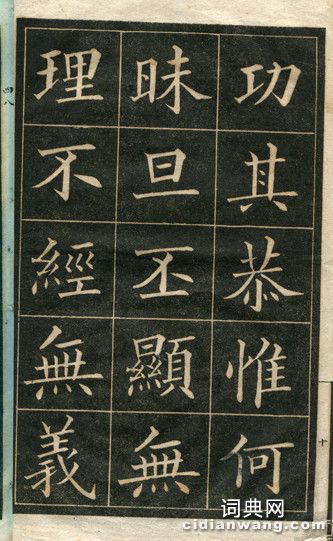 功其恭惟何
昧旦丕顯無
理不經無義
十
四八
词典网
cidianwang.com